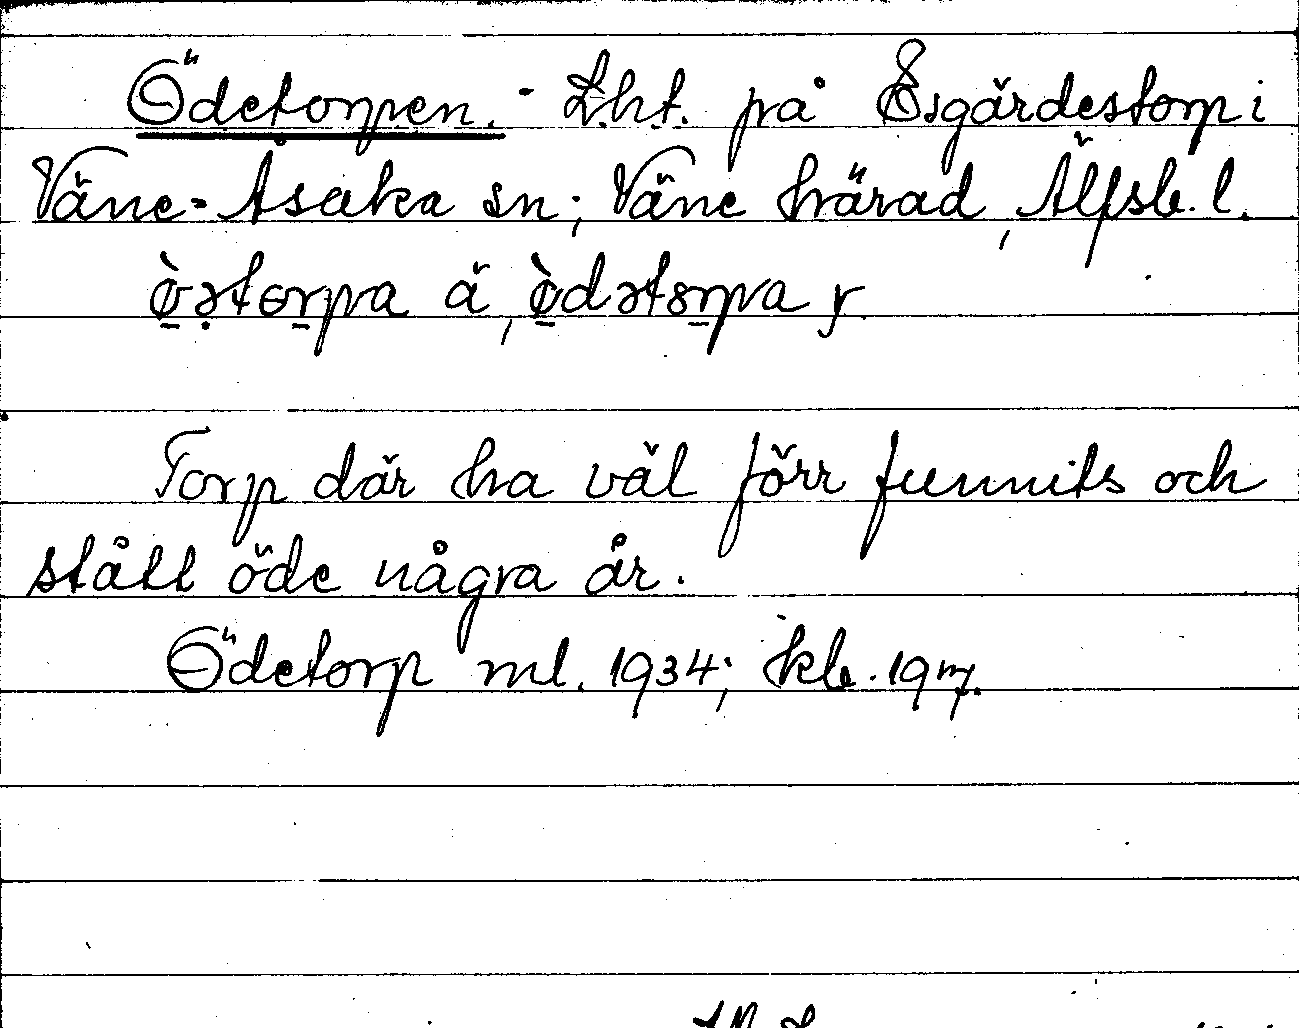 Ödetorpen. - Lht. på Esgärdestorp i
Väne-Åsaka sn; Väne härad, Älfsb. l.
ö̀ətorpa ä, ö̀dətorpa y.
Torp där ha väl förr funnits och
stått öde några år.
Ödetorp ml. 1934; kb. 1917.